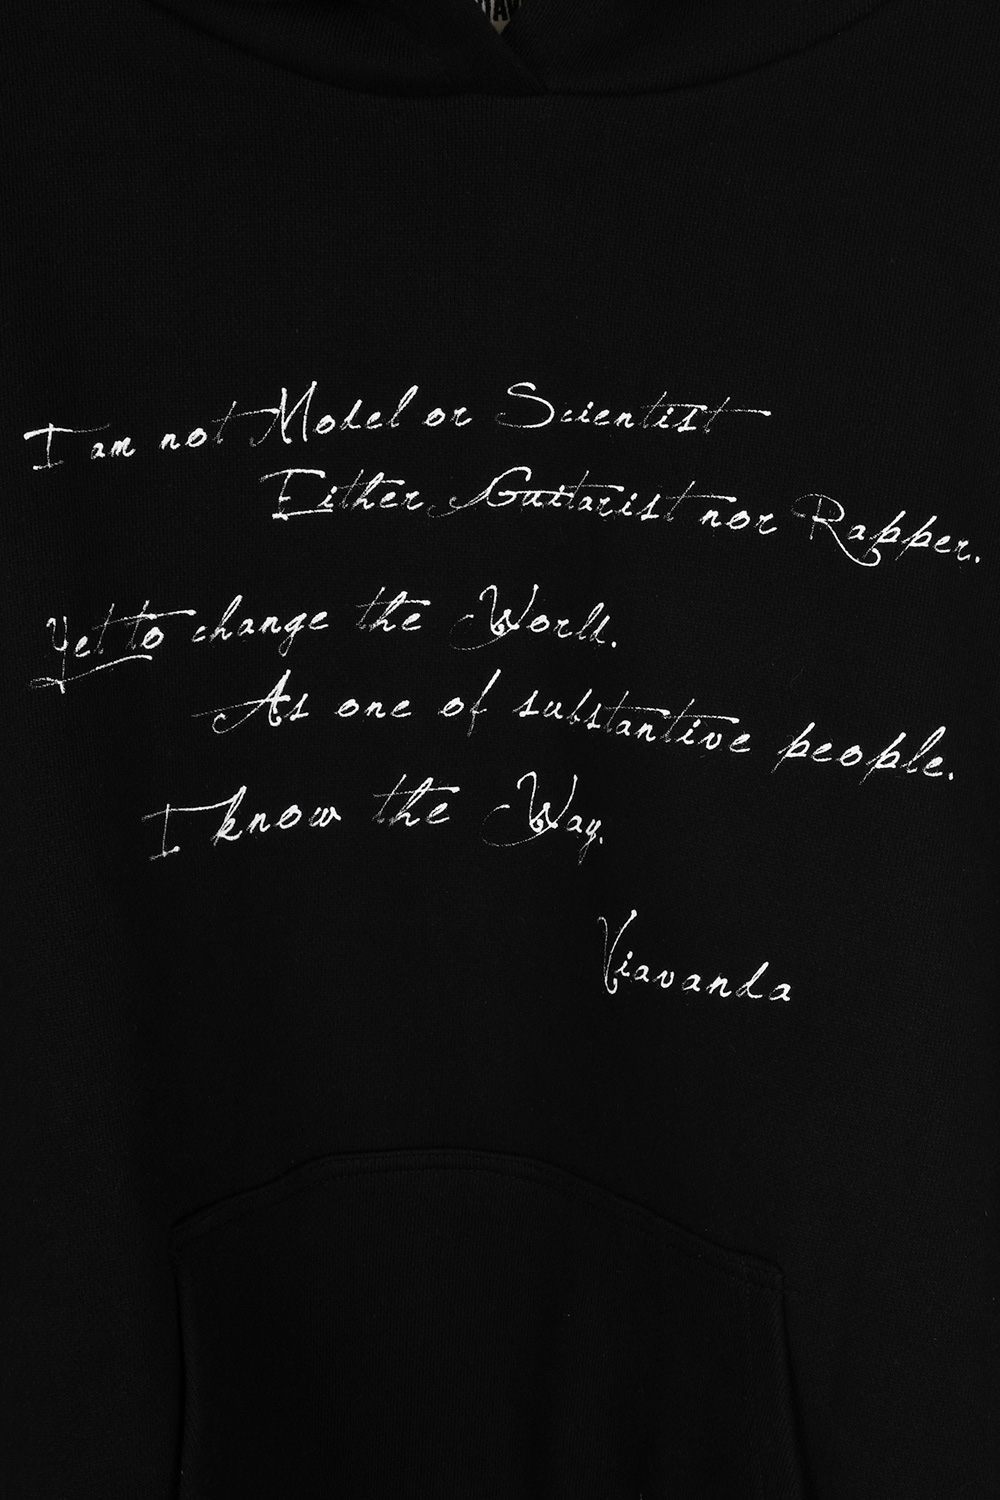 I am not Model or Scientist
Either Guitarist nor Rapper.
Yet to change the World.
As one of substantive people.
I know the Way.
Viavanda